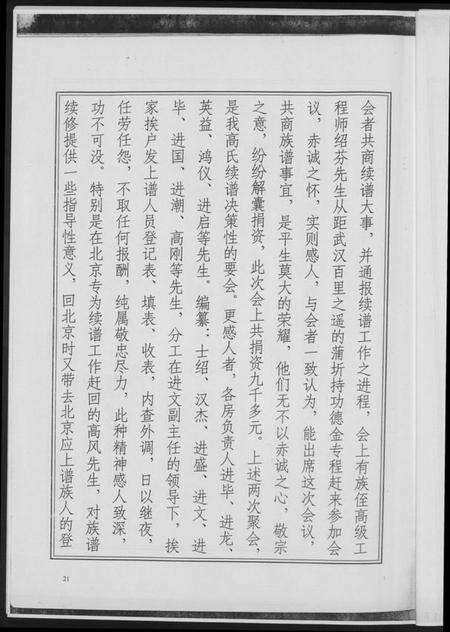 会者共商续谱大事，并通报续谱工作之进程，会上有族侄高级工
程师绍芬先生从距武汉百里之遥的蒲圻持功德金专程赶来参加会
议，赤诚之怀，实则感人，与会者一致认为，能出席这次会议，
共商族谱事宜，是平生莫大的荣耀，他们无不以赤诚之心，敬宗
之意，纷纷解囊捐资，此次会上共捐资九千多元。上述两次聚会，
是我高氏续谱决策性的要会。更感人者，各房负责人进毕、进龙、
英益、鸿仪、进启等先生。编纂：士绍、汉杰、进盛、进文、进
毕、进国、进潮、高刚等先生，分工在进文副主任的领导下，挨
家挨户发上谱人员登记表、填表、收表，内查外调，日以继夜，
任劳任怨，不取任何报酬，纯属敬忠尽力，此种精神感人致深，
功不可没。特别是在北京专为续谱工作赶回的高风先生，对族谱
续修提供一些指导性意义，回北京时又带去北京应上谱族人的登
21